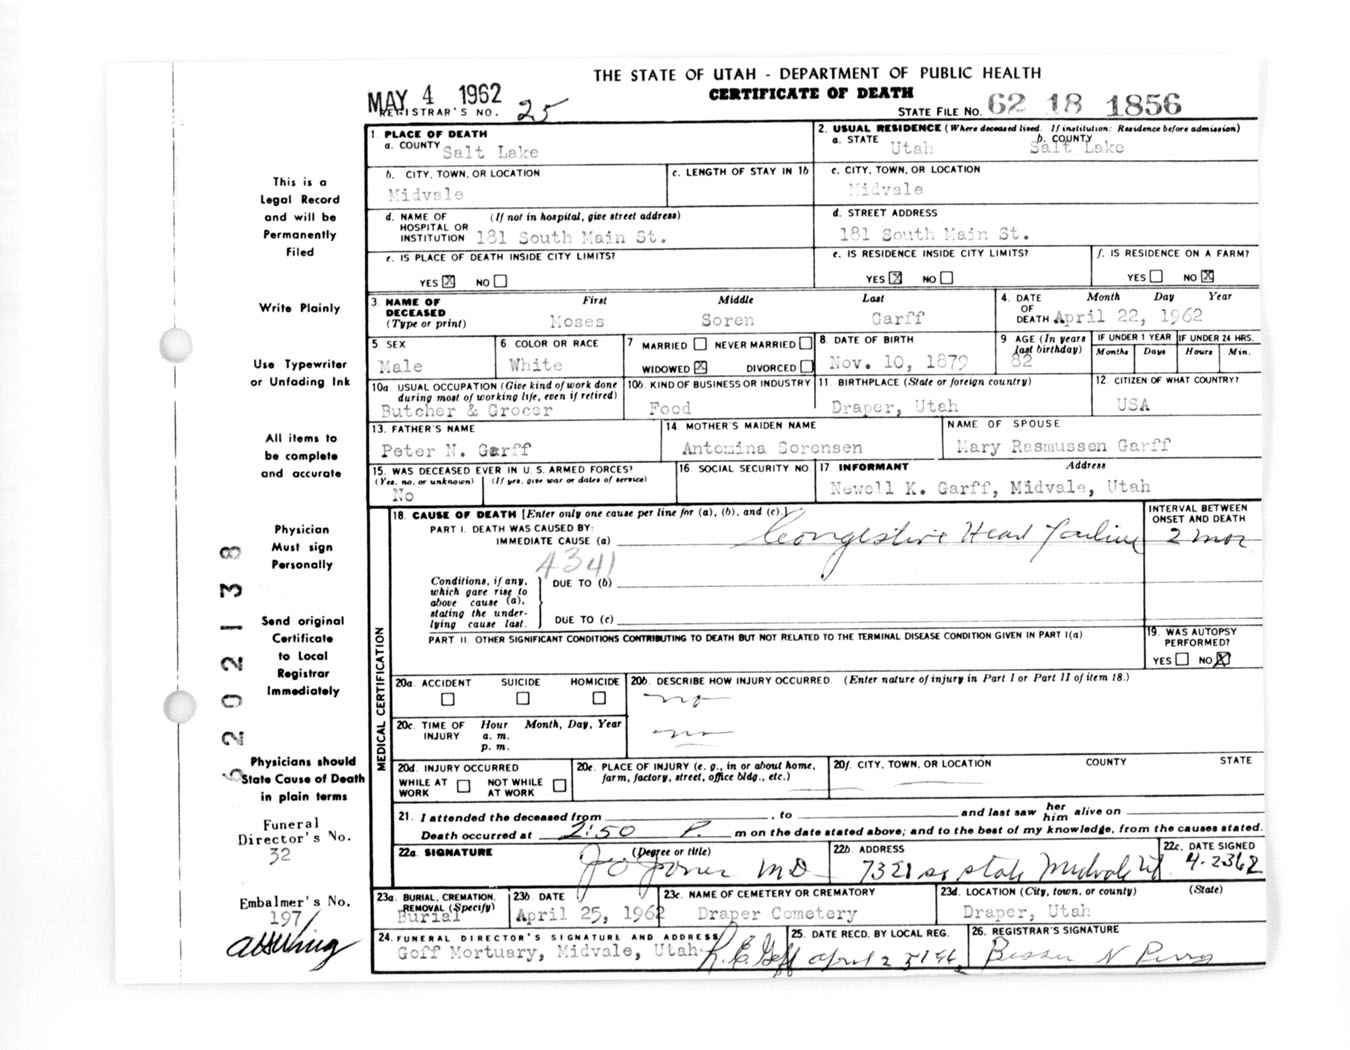 THE STATE OF UTAH - DEPARTMENT OF PUBLIC HEALTH
CERTIFICATE OF DEATH
MAY 4 1962
REGISTRAR'S NO. 25
STATE FILE NO. 62 18 1856
This is a
Legal Record
and will be
Permanently
Filed
Write Plainly
Use Typewriter
or Unfading Ink
All items to
be complete
and accurate
Physician
Must sign
Personally
Send original
Certificate
to Local
Registrar
Immediately
Physicians should
State Cause of Death
in plain terms
Funeral
Director's No.
32
Embalmer's No.
197
1. PLACE OF DEATH
a. COUNTY Salt Lake
2. USUAL RESIDENCE (Where deceased lived. If institution: Residence before admission)
a. STATE Utah b. COUNTY Salt Lake
b. CITY, TOWN, OR LOCATION Midvale
c. LENGTH OF STAY IN 1b
c. CITY, TOWN, OR LOCATION Midvale
d. NAME OF HOSPITAL OR INSTITUTION (If not in hospital, give street address) 181 South Main St.
d. STREET ADDRESS 181 South Main St.
e. IS PLACE OF DEATH INSIDE CITY LIMITS?
YES ☒ NO ☐
e. IS RESIDENCE INSIDE CITY LIMITS?
YES ☒ NO ☐
f. IS RESIDENCE ON A FARM?
YES ☐ NO ☒
3 NAME OF DECEASED (Type or print) First Middle Last
Moses Soren Garff
4. DATE OF DEATH Month Day Year
April 22, 1962
5. SEX Male
6 COLOR OR RACE White
7 MARRIED ☐ NEVER MARRIED ☐
WIDOWED ☒ DIVORCED ☐
8. DATE OF BIRTH Nov. 10, 1879
9 AGE (In years last birthday) 82
IF UNDER 1 YEAR Months Days
IF UNDER 24 HRS. Hours Min.
10a USUAL OCCUPATION (Give kind of work done during most of working life, even if retired) Butcher & Grocer
10b. KIND OF BUSINESS OR INDUSTRY Food
11 BIRTHPLACE (State or foreign country) Draper, Utah
12 CITIZEN OF WHAT COUNTRY? USA
13. FATHER'S NAME Peter N. Garff
14 MOTHER'S MAIDEN NAME Antomina Sorensen
NAME OF SPOUSE Mary Rasmussen Garff
15. WAS DECEASED EVER IN U. S. ARMED FORCES?
(Yes, no, or unknown) (If yes, give war or dates of service)
No
16 SOCIAL SECURITY NO.
17 INFORMANT Address
Newell K. Garff, Midvale, Utah
MEDICAL CERTIFICATION
18. CAUSE OF DEATH [Enter only one cause per line for (a), (b), and (c).]
INTERVAL BETWEEN ONSET AND DEATH
PART I. DEATH WAS CAUSED BY:
IMMEDIATE CAUSE (a) Congestive Heart Failure 2 mos
4341
Conditions, if any, which gave rise to above cause (a), stating the underlying cause last.
DUE TO (b)
DUE TO (c)
PART II. OTHER SIGNIFICANT CONDITIONS CONTRIBUTING TO DEATH BUT NOT RELATED TO THE TERMINAL DISEASE CONDITION GIVEN IN PART I(a)
19. WAS AUTOPSY PERFORMED?
YES ☐ NO ☒
20a. ACCIDENT SUICIDE HOMICIDE
☐ ☐ ☐
20b. DESCRIBE HOW INJURY OCCURRED. (Enter nature of injury in Part I or Part II of item 18.)
no
20c. TIME OF INJURY Hour Month, Day, Year
a. m.
p. m.
no
20d. INJURY OCCURRED
WHILE AT WORK ☐ NOT WHILE AT WORK ☐
20e. PLACE OF INJURY (e. g., in or about home, farm, factory, street, office bldg., etc.)
20f. CITY, TOWN, OR LOCATION COUNTY STATE
21. I attended the deceased from , to and last saw her him alive on
Death occurred at 2:50 P. m on the date stated above; and to the best of my knowledge, from the causes stated.
22a. SIGNATURE (Degree or title) J O Jones MD
22b. ADDRESS 7321 so state Midvale Ut
22c. DATE SIGNED 4-23 62
23a. BURIAL, CREMATION, REMOVAL (Specify) Burial
23b. DATE April 25, 1962
23c. NAME OF CEMETERY OR CREMATORY Draper Cemetery
23d. LOCATION (City, town, or county) (State) Draper, Utah
24. FUNERAL DIRECTOR'S SIGNATURE AND ADDRESS
Goff Mortuary, Midvale, Utah R. E. Goff
25. DATE RECD. BY LOCAL REG. April 25 1962
26. REGISTRAR'S SIGNATURE